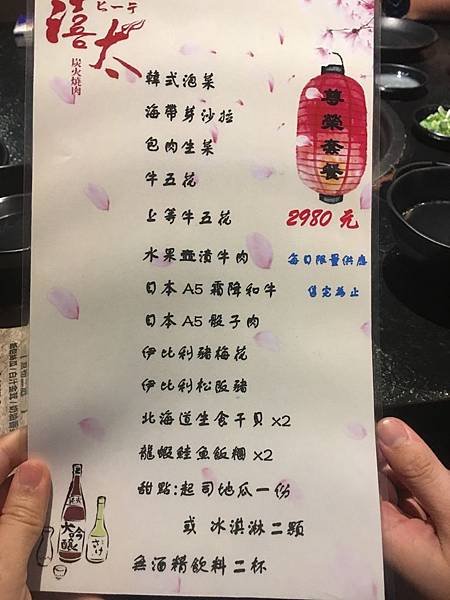 禧太
ヒーテ
炭火燒肉
尊榮套餐
2980 元
每日限量供應
售完為止
韓式泡菜
海帶芽沙拉
包肉生菜
牛五花
上等牛五花
水果壺漬牛肉
日本 A5 霜降和牛
日本 A5 骰子肉
伊比利豬梅花
伊比利松阪豬
北海道生食干貝 x2
龍蝦鮭魚飯糰 x2
甜點:起司地瓜一份
或 冰淇淋二顆
無酒精飲料二杯
大吟醸
さけ